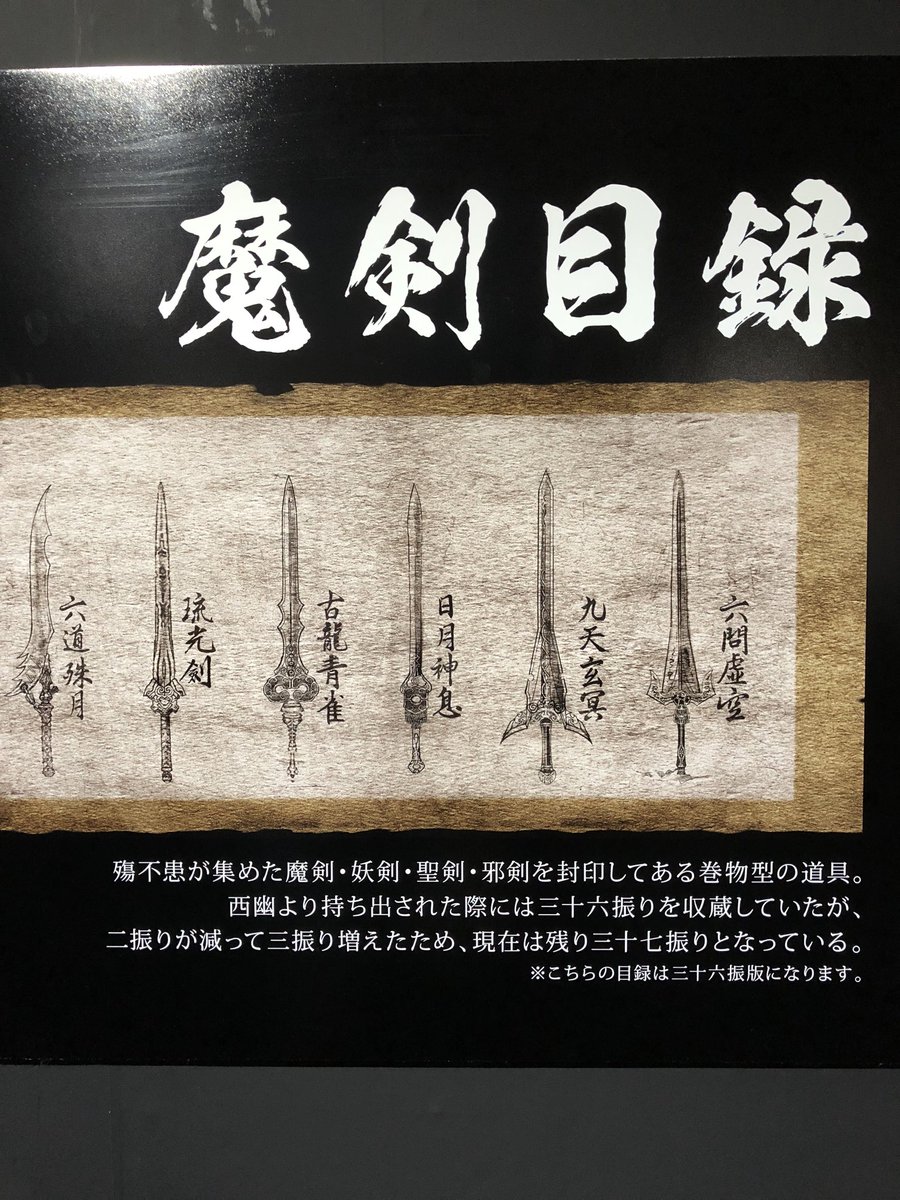 魔剣目録
六問虚空
九天玄冥
日月神息
古龍青雀
琉光剣
六道殊月
殤不患が集めた魔剣・妖剣・聖剣・邪剣を封印してある巻物型の道具。
西幽より持ち出された際には三十六振りを収蔵していたが、
二振りが減って三振り増えたため、現在は残り三十七振りとなっている。
※こちらの目録は三十六振版になります。